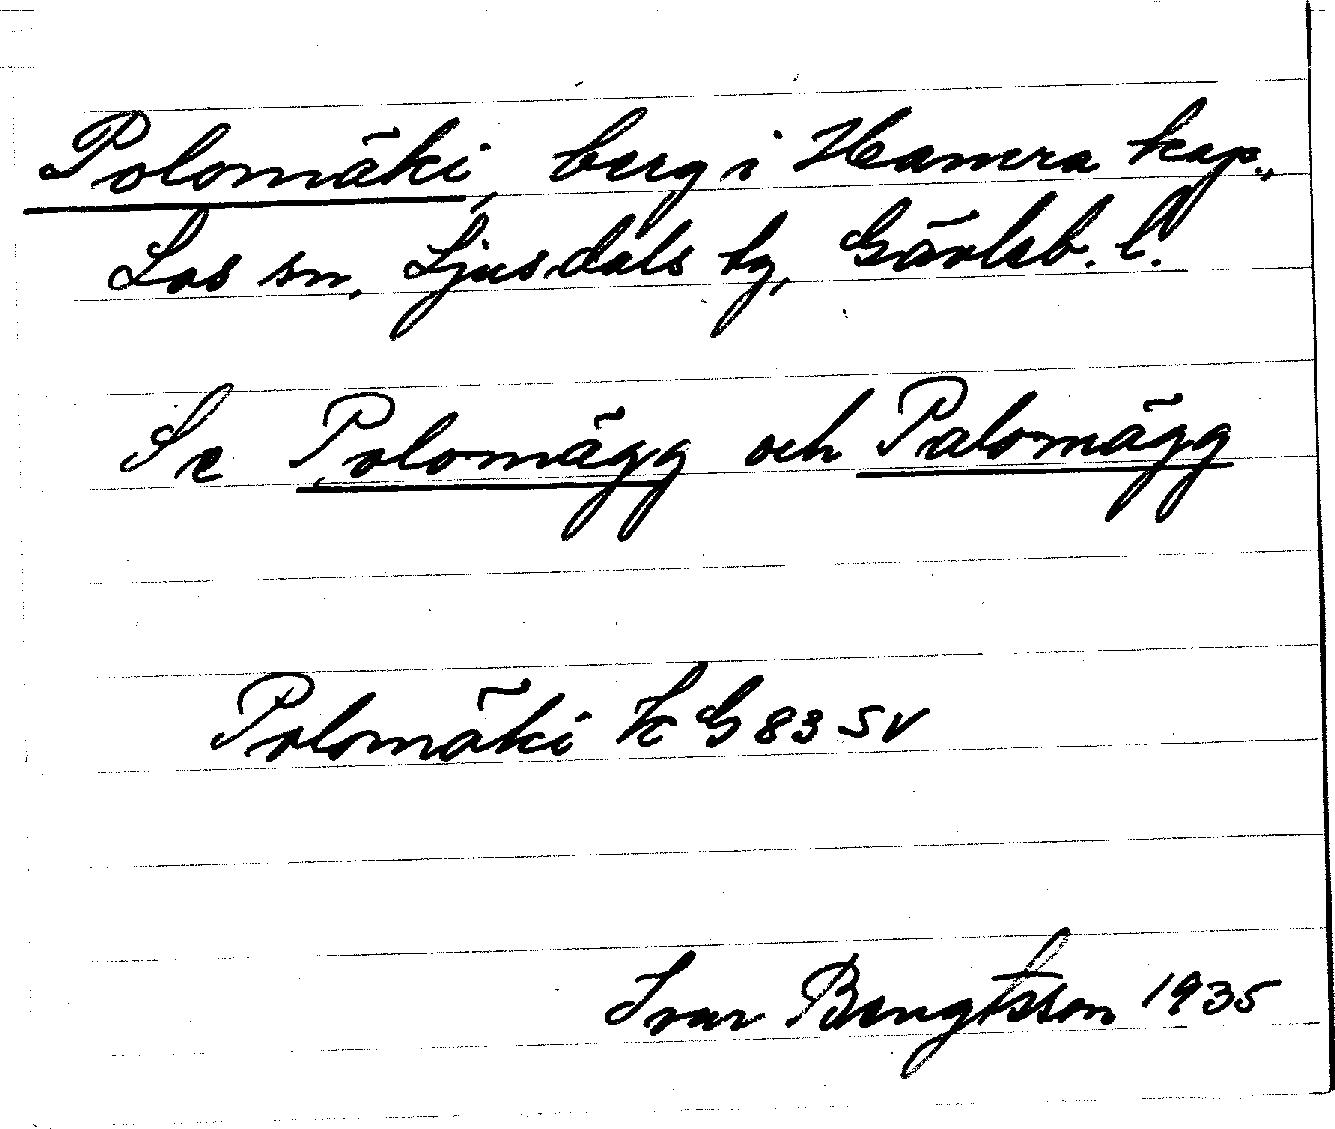 Polomäki, berg i Hamra kap.,
Los sn, Ljusdals tg, Gävleb. l.
Se Polomägg och Palomägg
Polomäki K G 83 SV
Ivar Bengtsson 1935